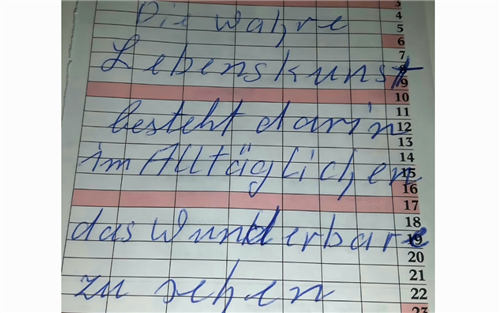 Die wahre
Lebenskunst
besteht darin
im Alltäglichen
das Wunderbare
zu sehen
3
4
5
6
7
8
9
10
11
12
13
14
15
16
17
18
19
20
21
22
23